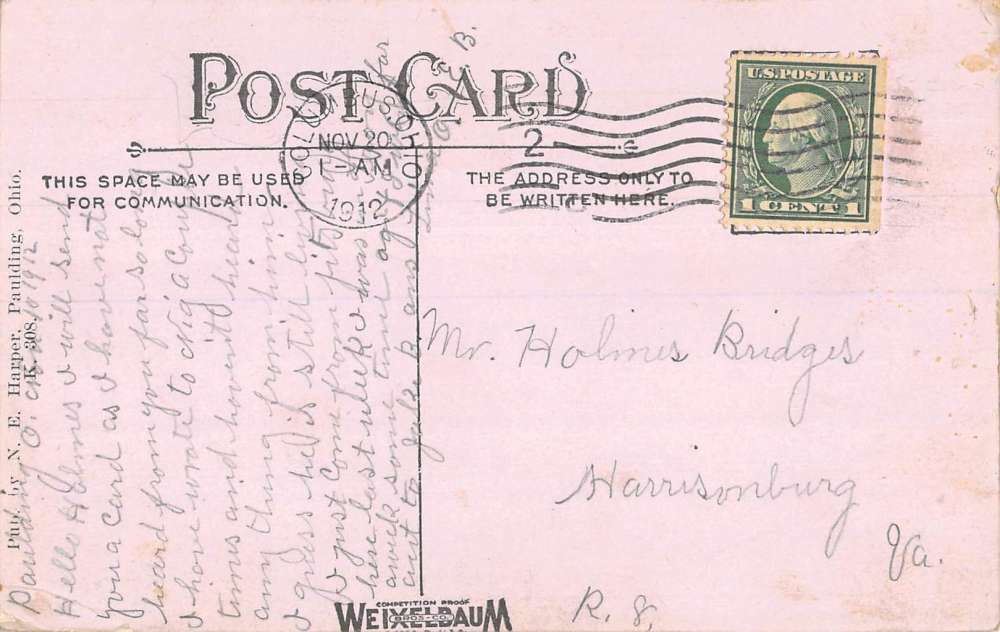 POST CARD
COLUMBUS, OHIO
NOV 20
AM
1912
2
U.S. POSTAGE
1 CENT 1
THIS SPACE MAY BE USED
FOR COMMUNICATION.
THE ADDRESS ONLY TO
BE WRITTEN HERE.
Pub. by N. E. Harper, Paulding, Ohio.
K. 308.
Paulding O. 1912
Hello Holmes I will send
you a card as I have not
heard from you for so long
I have wrote to a couple
times and havent heard
any thing from him
I guess he is still
I just come from
here last week was
a week some time ago
Mr. Holmes Bridges
Harrisonburg
Va.
R. 8.
COMPETITION PROOF
WEIXELBAUM
BROS. CO.